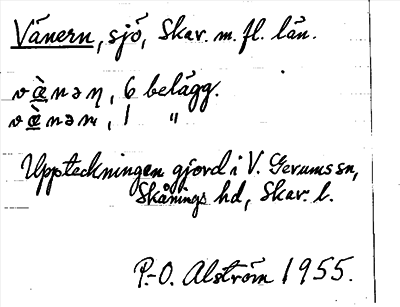 Vänern, sjö, Skar. m. fl. län.
væ̀nəɳ, 6 belägg.
væ̀nəɴ, 1 "
Uppteckningen gjord i V. Gerums sn,
Skånings hd, Skar. l.
P.-O. Alström 1955.